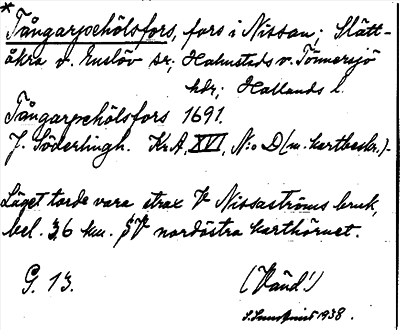 *
Tångarpehölsfors, fors i Nissan; Slätt-
åkra o. Enslöv sr; Halmstads o. Tönnersjö
hdr; Hallands l.
Tångarpehölsfors 1691.
J. Söderlingh. Kr A, XVI, N:o D (m. kartbeskr.).
Läget torde vara strax V Nissaströms bruk,
bel. 3,6 km. SV nordöstra karthörnet.
G. 13.
(Vänd!)
1938.